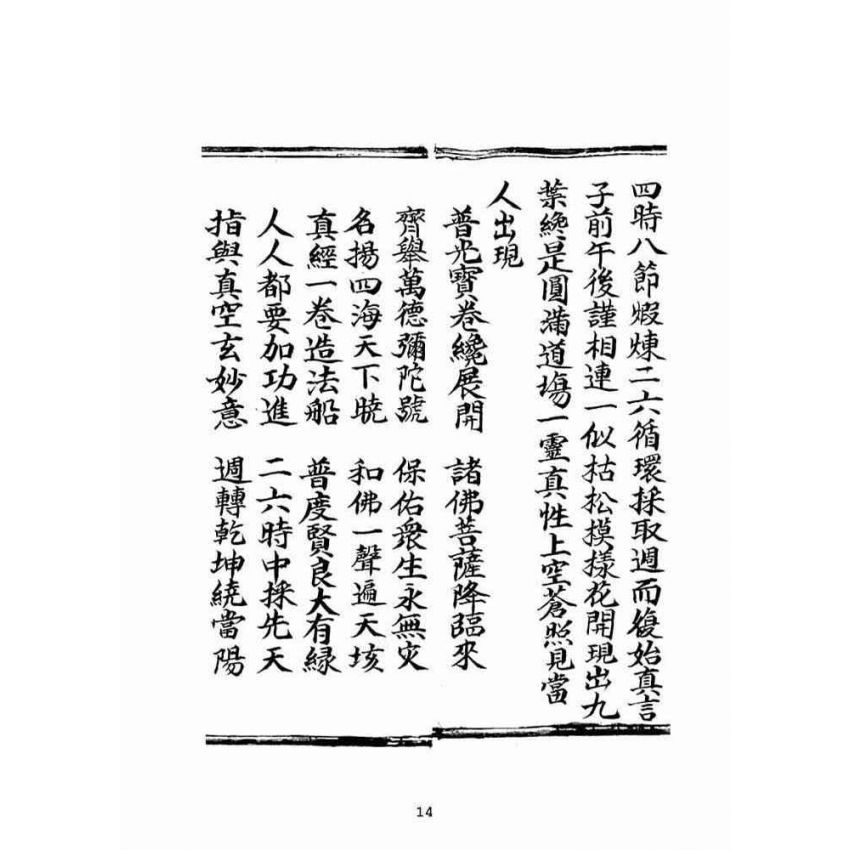 四時八節煆煉二六循環採取週而復始真言
子前午後謹相連一似枯松摸樣花開現出九
葉纔是圓滿道塲一靈真性上空蒼照見當
人出現
普光寶卷纔展開 諸佛菩薩降臨來
齊舉萬德彌陀號 保佑衆生永無灾
名揚四海天下曉 和佛一聲遍天垓
真經一卷造法船 普度賢良大有緣
人人都要加功進 二六時中採先天
指與真空玄妙意 週轉乾坤繞當陽
14